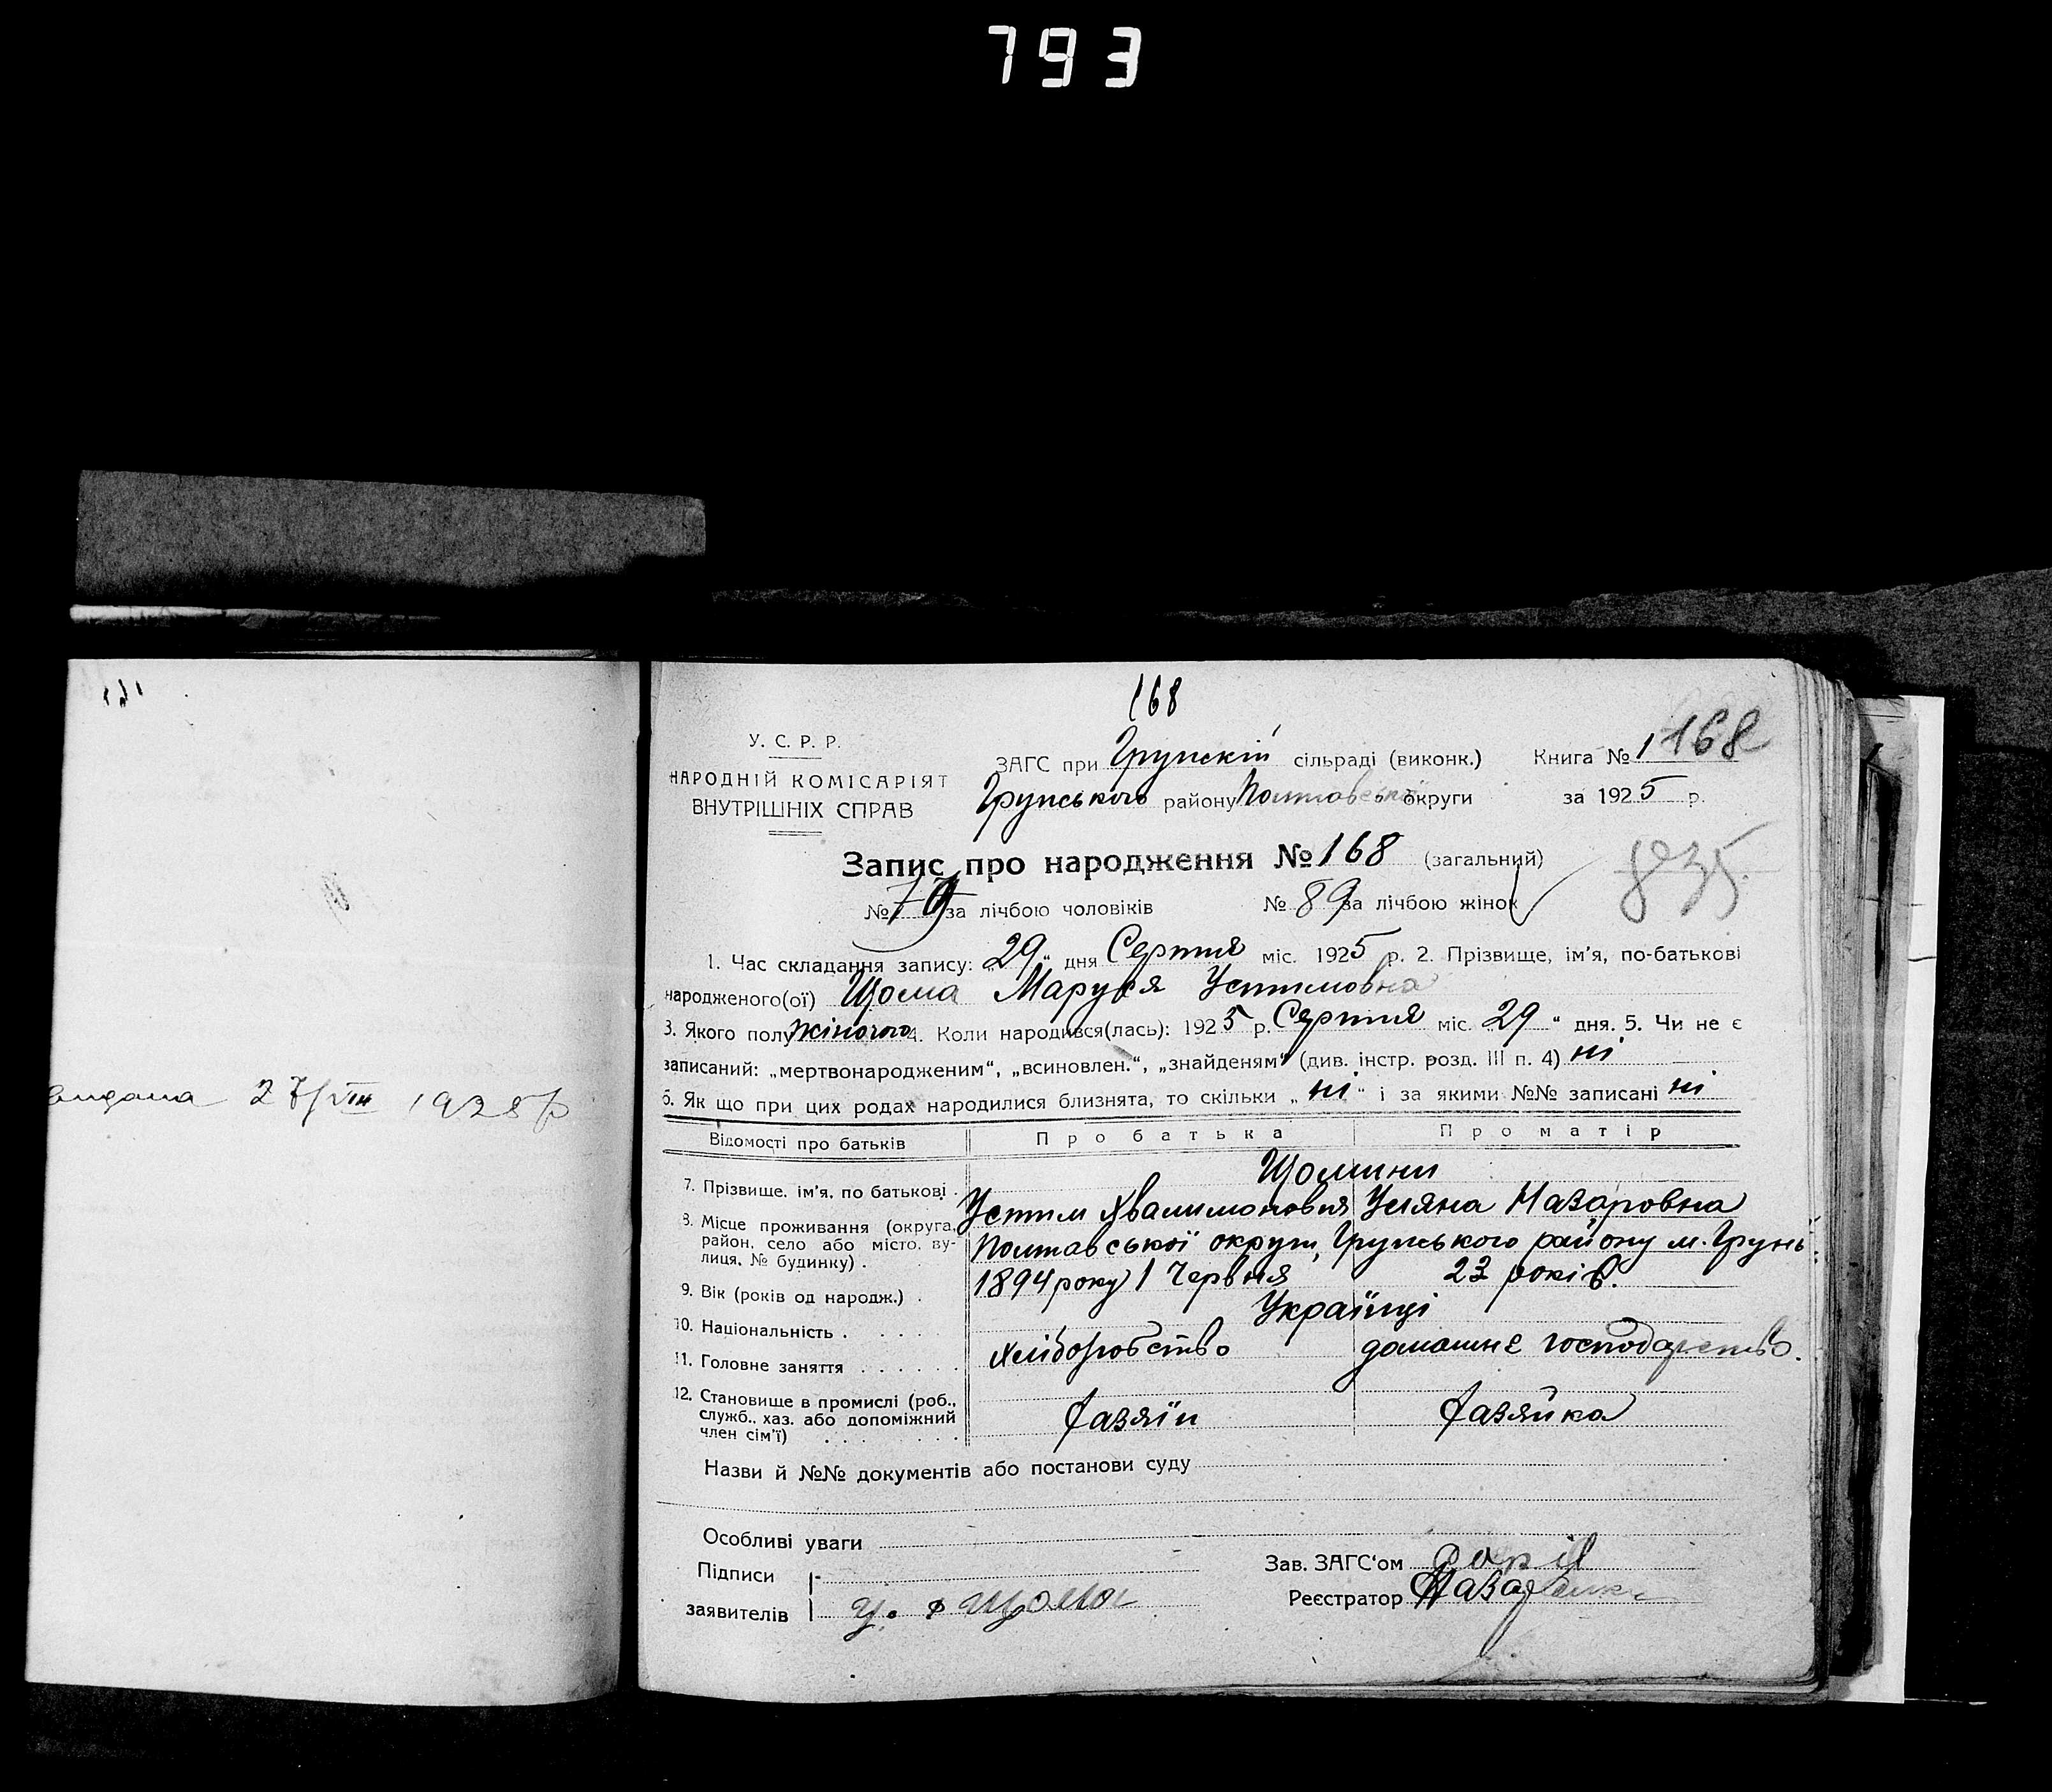 793
168
У. С. Р. Р.
НАРОДНІЙ КОМІСАРІЯТ
ВНУТРІШНІХ СПРАВ
ЗАГС при Грунскій сільраді (виконк.) Книга № 1 168
Грунського району Полтавської округи за 1925 р.
Запис про народження № 168 (загальний)
835
№ 79 за лічбою чоловіків № 89 за лічбою жінок
1. Час складання запису: „29“ дня Серпня міс. 1925 р. 2. Прізвище, ім'я, по-батькові
народженого(ої) Щома Маруся Устимовна
3. Якого полу жіночого 4. Коли народився(лась): 1925 р. Серпня міс. 29 “ дня. 5. Чи не є
записаний: „мертвонародженим“, „всиновлен.“, „знайденям“ (див. інстр. розд. III п. 4) ні
6. Як що при цих родах народилися близнята, то скільки „ні“ і за якими №№ записані ні
Відомості про батьків Про батька Про матір
Щомини
7. Прізвище, ім'я, по батькові . Устим Хвалимонович Уляна Назаровна
8. Місце проживання (округа, район, село або місто, вулиця, № будинку) . Полтавської округи, Грунського району м. Грунь
9. Вік (років од народж.) . 1894 року 1 Червня 23 років.
10. Національність . . . . Українці
11. Головне заняття . . . . . . хліборобство домашнє господарство.
12. Становище в промислі (роб., служб., хаз. або допоміжний член сім'ї) . . . . . . хазяїн хазяйка
Назви й №№ документів або постанови суду
Особливі уваги
Підписи
заявителів У. Ф Щома
Зав. ЗАГС'ом
Реєстратор Назаренко
видана 27/VIII 1928 р